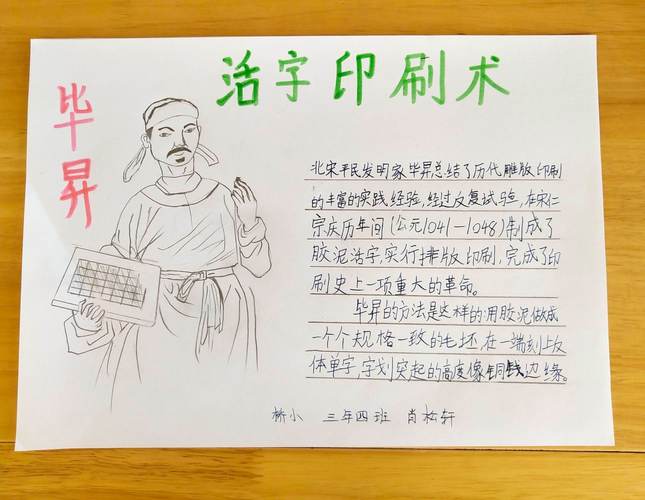 活字印刷术
毕昇
北宋平民发明家毕昇总结了历代雕版印刷
的丰富的实践经验,经过反复试验,在宋仁
宗庆历年间(公元1041—1048)制成了
胶泥活字,实行排版印刷,完成了印
刷史上一项重大的革命。
毕昇的方法是这样的:用胶泥做成
一个个规格一致的毛坯,在一端刻上反
体单字,字划突起的高度像铜钱边缘。
桥小 三年四班 肖松轩